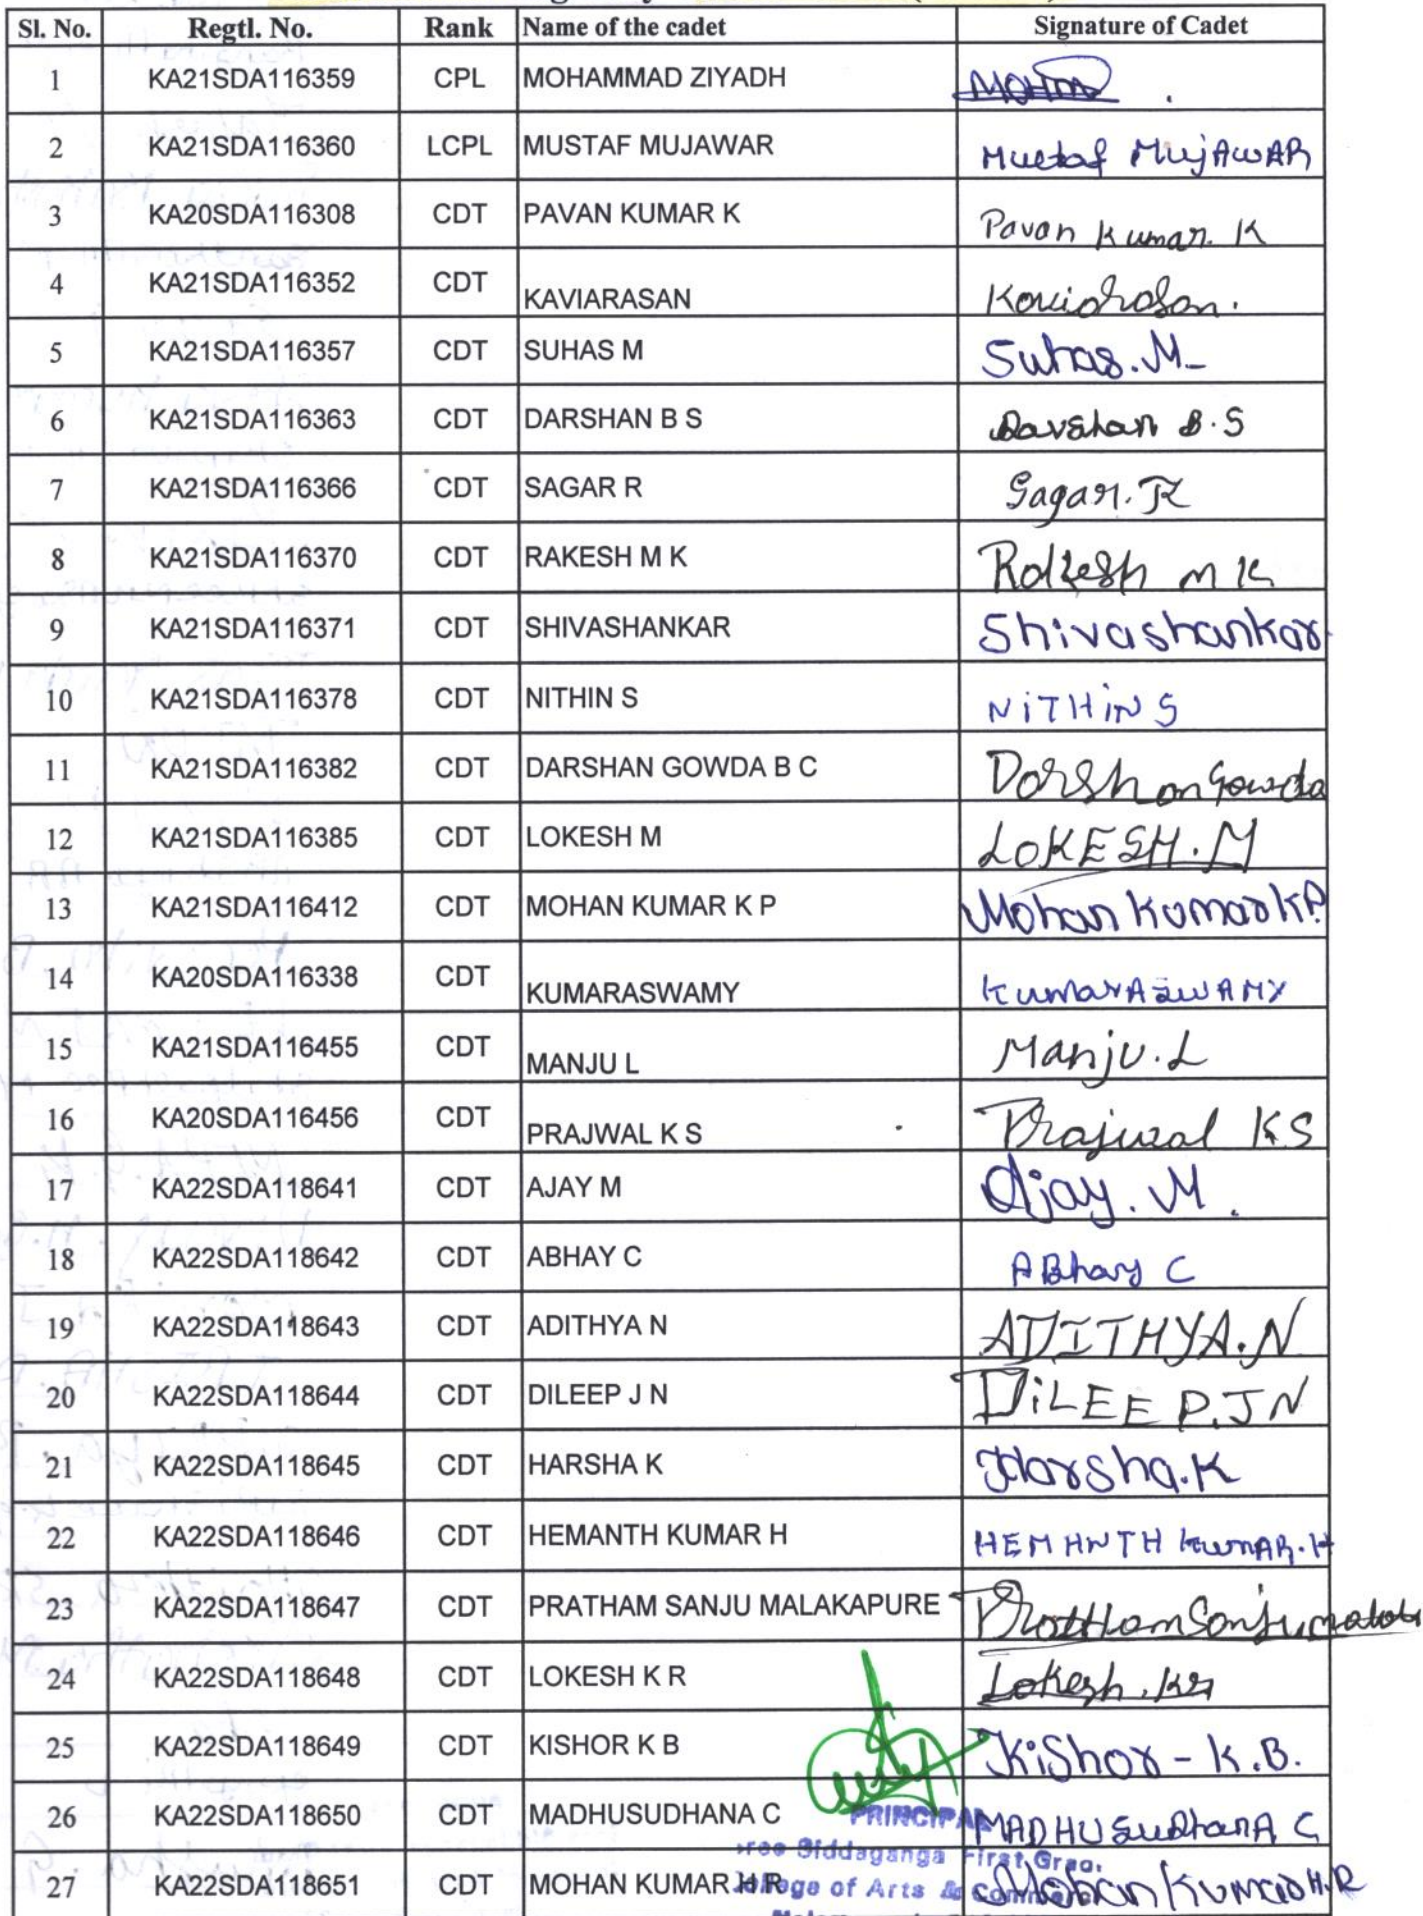 Sl. No. Regtl. No. Rank Name of the cadet Signature of Cadet
1 KA21SDA116359 CPL MOHAMMAD ZIYADH
2 KA21SDA116360 LCPL MUSTAF MUJAWAR Mustaf MujAWAR
3 KA20SDA116308 CDT PAVAN KUMAR K Pavan Kumar. K
4 KA21SDA116352 CDT KAVIARASAN Kaviarasan.
5 KA21SDA116357 CDT SUHAS M Suhas.M
6 KA21SDA116363 CDT DARSHAN B S Darshan B.S
7 KA21SDA116366 CDT SAGAR R Sagar.R
8 KA21SDA116370 CDT RAKESH M K Rakesh M K
9 KA21SDA116371 CDT SHIVASHANKAR Shivashankar
10 KA21SDA116378 CDT NITHIN S NiTHiN S
11 KA21SDA116382 CDT DARSHAN GOWDA B C Darshan Gowda
12 KA21SDA116385 CDT LOKESH M LOKESH.M
13 KA21SDA116412 CDT MOHAN KUMAR K P Mohan Kumar K P
14 KA20SDA116338 CDT KUMARASWAMY KumarASWAMY
15 KA21SDA116455 CDT MANJU L Manju.L
16 KA20SDA116456 CDT PRAJWAL K S Prajwal KS
17 KA22SDA118641 CDT AJAY M Ajay.M.
18 KA22SDA118642 CDT ABHAY C ABhay C
19 KA22SDA118643 CDT ADITHYA N ADITHYA.N
20 KA22SDA118644 CDT DILEEP J N DiLEEP.JN
21 KA22SDA118645 CDT HARSHA K Harsha.K
22 KA22SDA118646 CDT HEMANTH KUMAR H HEMANTH KumAR.H
23 KA22SDA118647 CDT PRATHAM SANJU MALAKAPURE Prattham Sanju
24 KA22SDA118648 CDT LOKESH K R Lokesh.kr
25 KA22SDA118649 CDT KISHOR K B KiShor - K.B.
26 KA22SDA118650 CDT MADHUSUDHANA C MADHUSudhanA C
PRINCIPAL
ree Siddaganga First Grao.
27 KA22SDA118651 CDT MOHAN KUMAR H R Mohan Kumar H.R
of Arts &